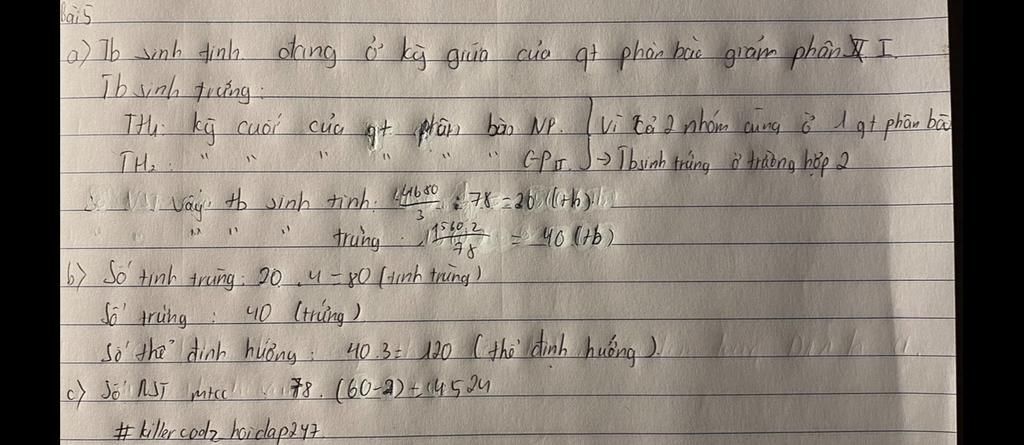 Bài 5
a) Tb sinh tinh đang ở kỳ giữa của qt phân bào giảm phân I.
Tb sinh trứng:
TH1: kỳ cuối của qt phân bào NP. } Vì cả 2 nhóm cùng ở 1 qt phân bào
TH2: " " " " " " GPII. → Tb sinh trứng ở trường hợp 2
Vậy tb sinh tinh: 4680/3 : 78 = 20 (tb)
" " " trứng: 1560.2/78 = 40 (tb)
b) Số tinh trùng: 20 . 4 = 80 (tinh trùng)
Số trứng : 40 (trứng)
Số thể định hướng : 40.3 = 120 (thể định hướng).
c) Số NST mtcc : 78. (60-2) = 4524
# killercodz hoidap247